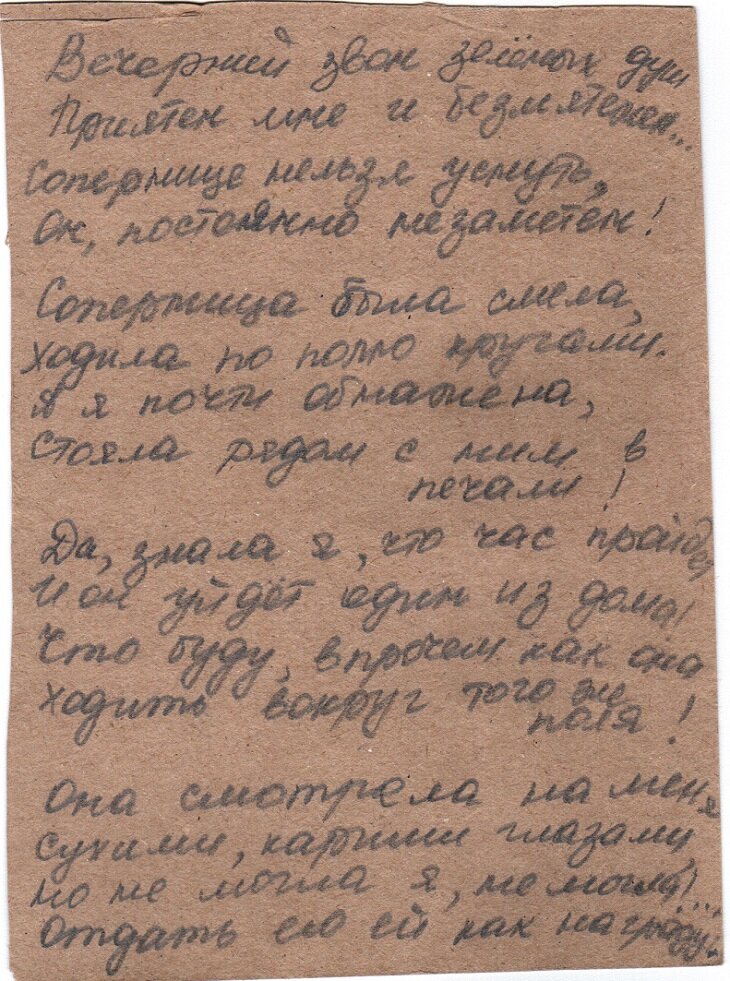 Вечерний звон зелёных душ
Приятен мне и безмятежен...
Сопернице нельзя уснуть,
Он, постоянно незаметен!
Соперница была смела,
ходила по полю кругами.
А я почти обнажена,
стояла рядом с ним в
печали!
Да, знала я, что час пройдёт
И он уйдёт один из дома!
Что буду, впрочем как она
ходить вокруг того же
поля!
Она смотрела на меня
сухими, карими глазами,
но не могла я, не могла!...
Отдать его ей как награду!